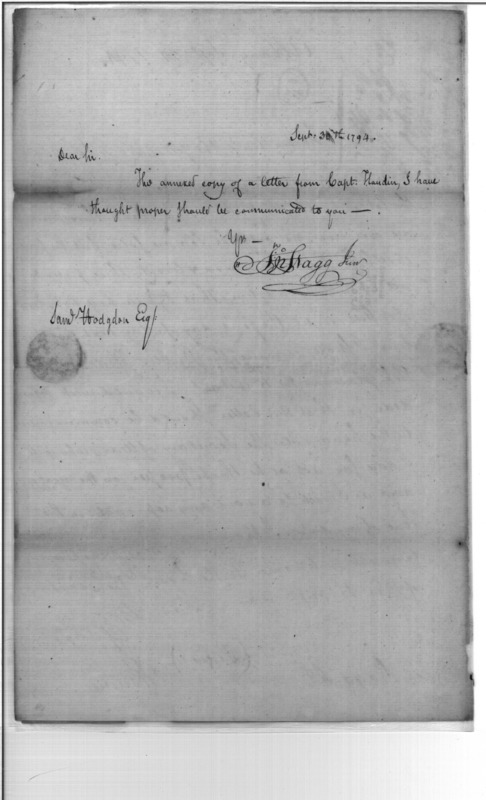 Sept. 30th 1794.
Dear Sir.
The annexed copy of a letter from Capt. Flaudin, I have
thought proper should be communicated to you — .
Yrs —
Jno Stagg Junr
Saml Hodgdon Esqr.